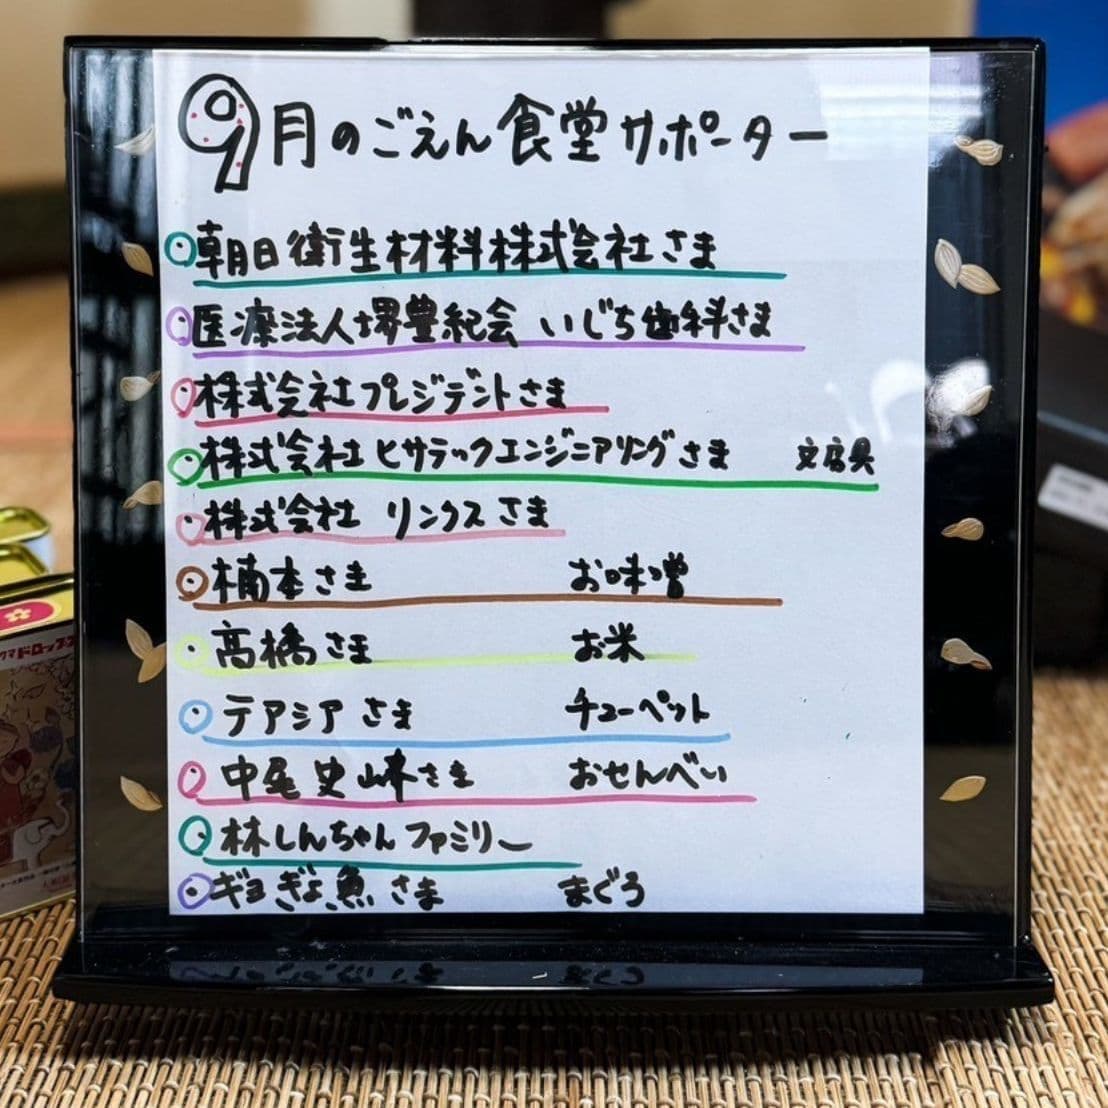 9月のごえん食堂サポーター
朝日衛生材料株式会社さま
医療法人堺豊紀会 いじち歯科さま
株式会社プレジデントさま
株式会社ヒサラックエンジニアリングさま 文房具
株式会社 リンクスさま
楠本さま お味噌
高橋さま お米
テアシアさま チューペット
中尾史峰さま おせんべい
林しんちゃんファミリー
ギョぎょ魚さま まぐろ
クマドロップス